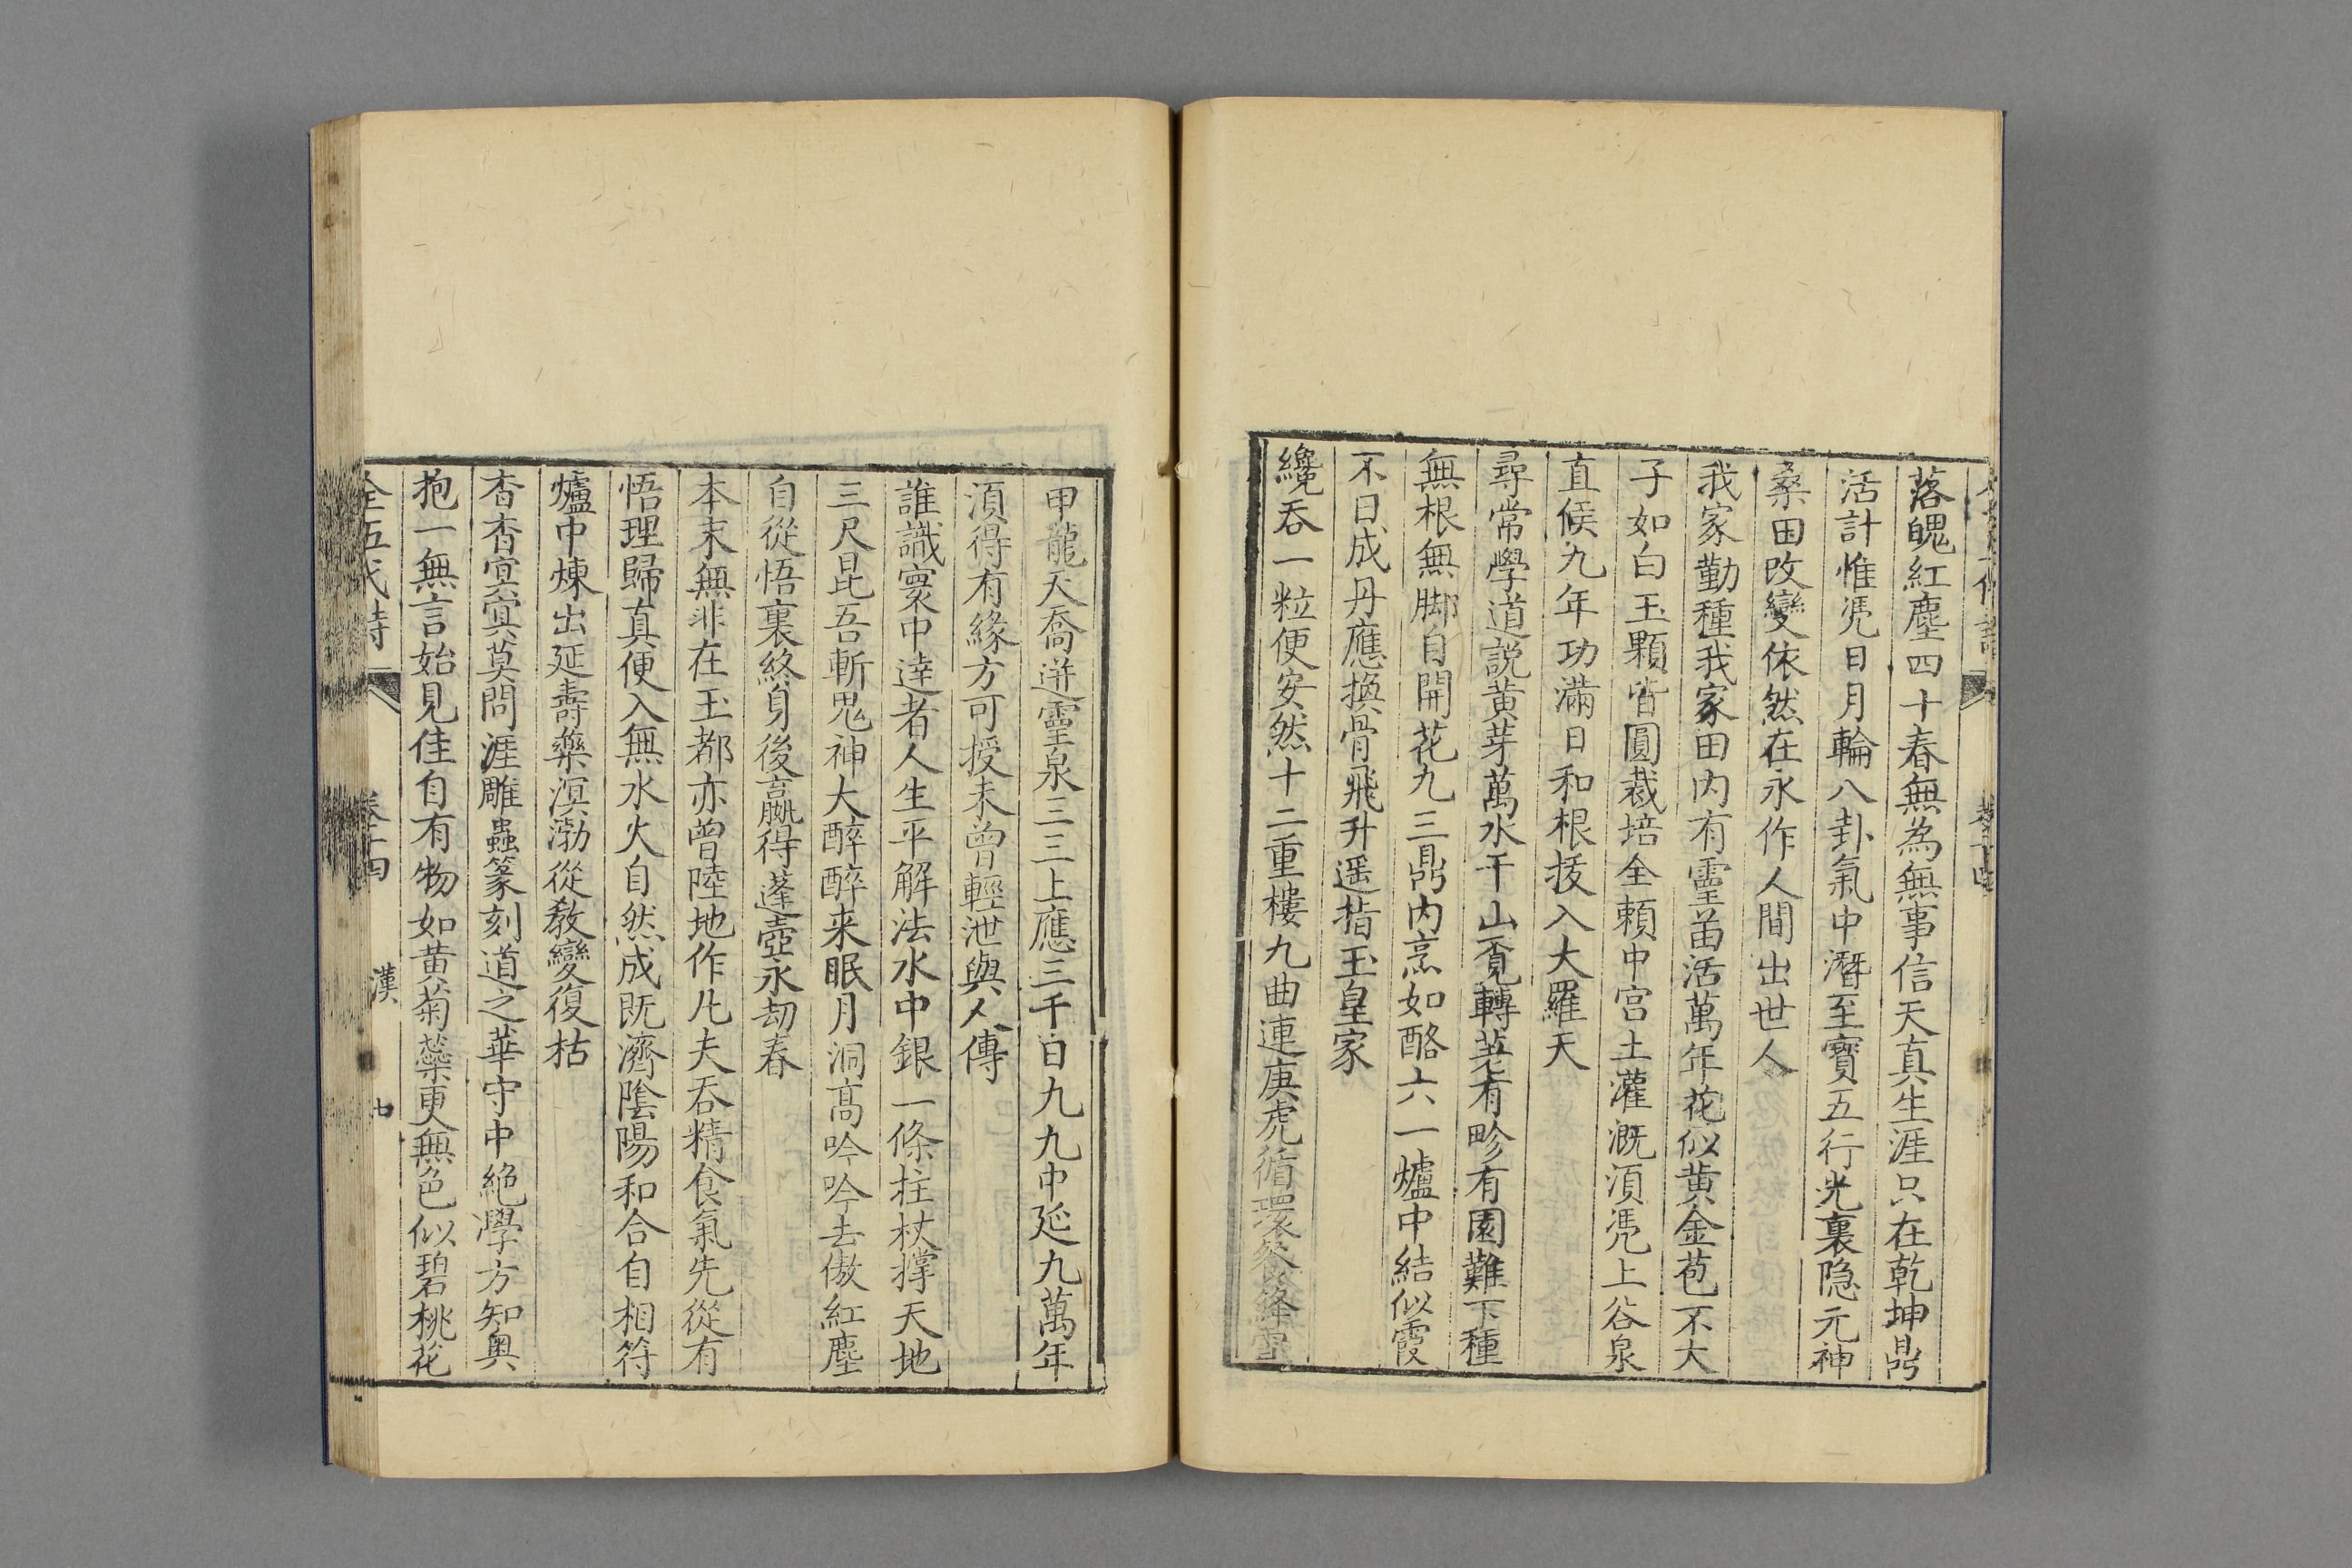 落魄紅塵四十春無為無事信天真生涯只在乾坤鼎
活計惟凴日月輪八卦氣中潛至寳五行光裏隐元神
桑田改變依然在永作人間出世人
我家勤種我家田内有靈苗活萬年花似黄金苞不大
子如白玉顆皆圓栽培全頼中宫土灌溉湏凴上谷泉
直候九年功滿日和根拔入大羅天
尋常學道説黄芽萬水千山覔轉差有畛有園難下種
無根無脚自開花九三鼎内烹如酪六一爐中結似霞
不日成丹應換骨飛升遥指玉皇家
纔吞一粒便安然十二重樓九曲連庚虎循環飡絳雪
甲龍天喬迸靈泉三三上應三千日九九中延九萬年
湏得有緣方可授未曾輕泄與人傳
誰識寰中達者人生平解法水中銀一條柱杖撐天地
三尺昆吾斬鬼神大醉醉来眠月洞高吟吟去傲紅塵
自從悟裏終身後贏得蓬壺永刼春
本末無非在玉都亦曾陸地作凡夫吞精食氣先從有
悟理歸真便入無水火自然成既濟陰陽和合自相符
爐中煉出延壽藥溟渤從教變復枯
杳杳寘寘莫問涯雕蟲篆刻道之華守中絶學方知奥
抱一無言始見佳自有物如黄菊蘂更無色似碧桃花
全五代詩 卷十四 漢 七